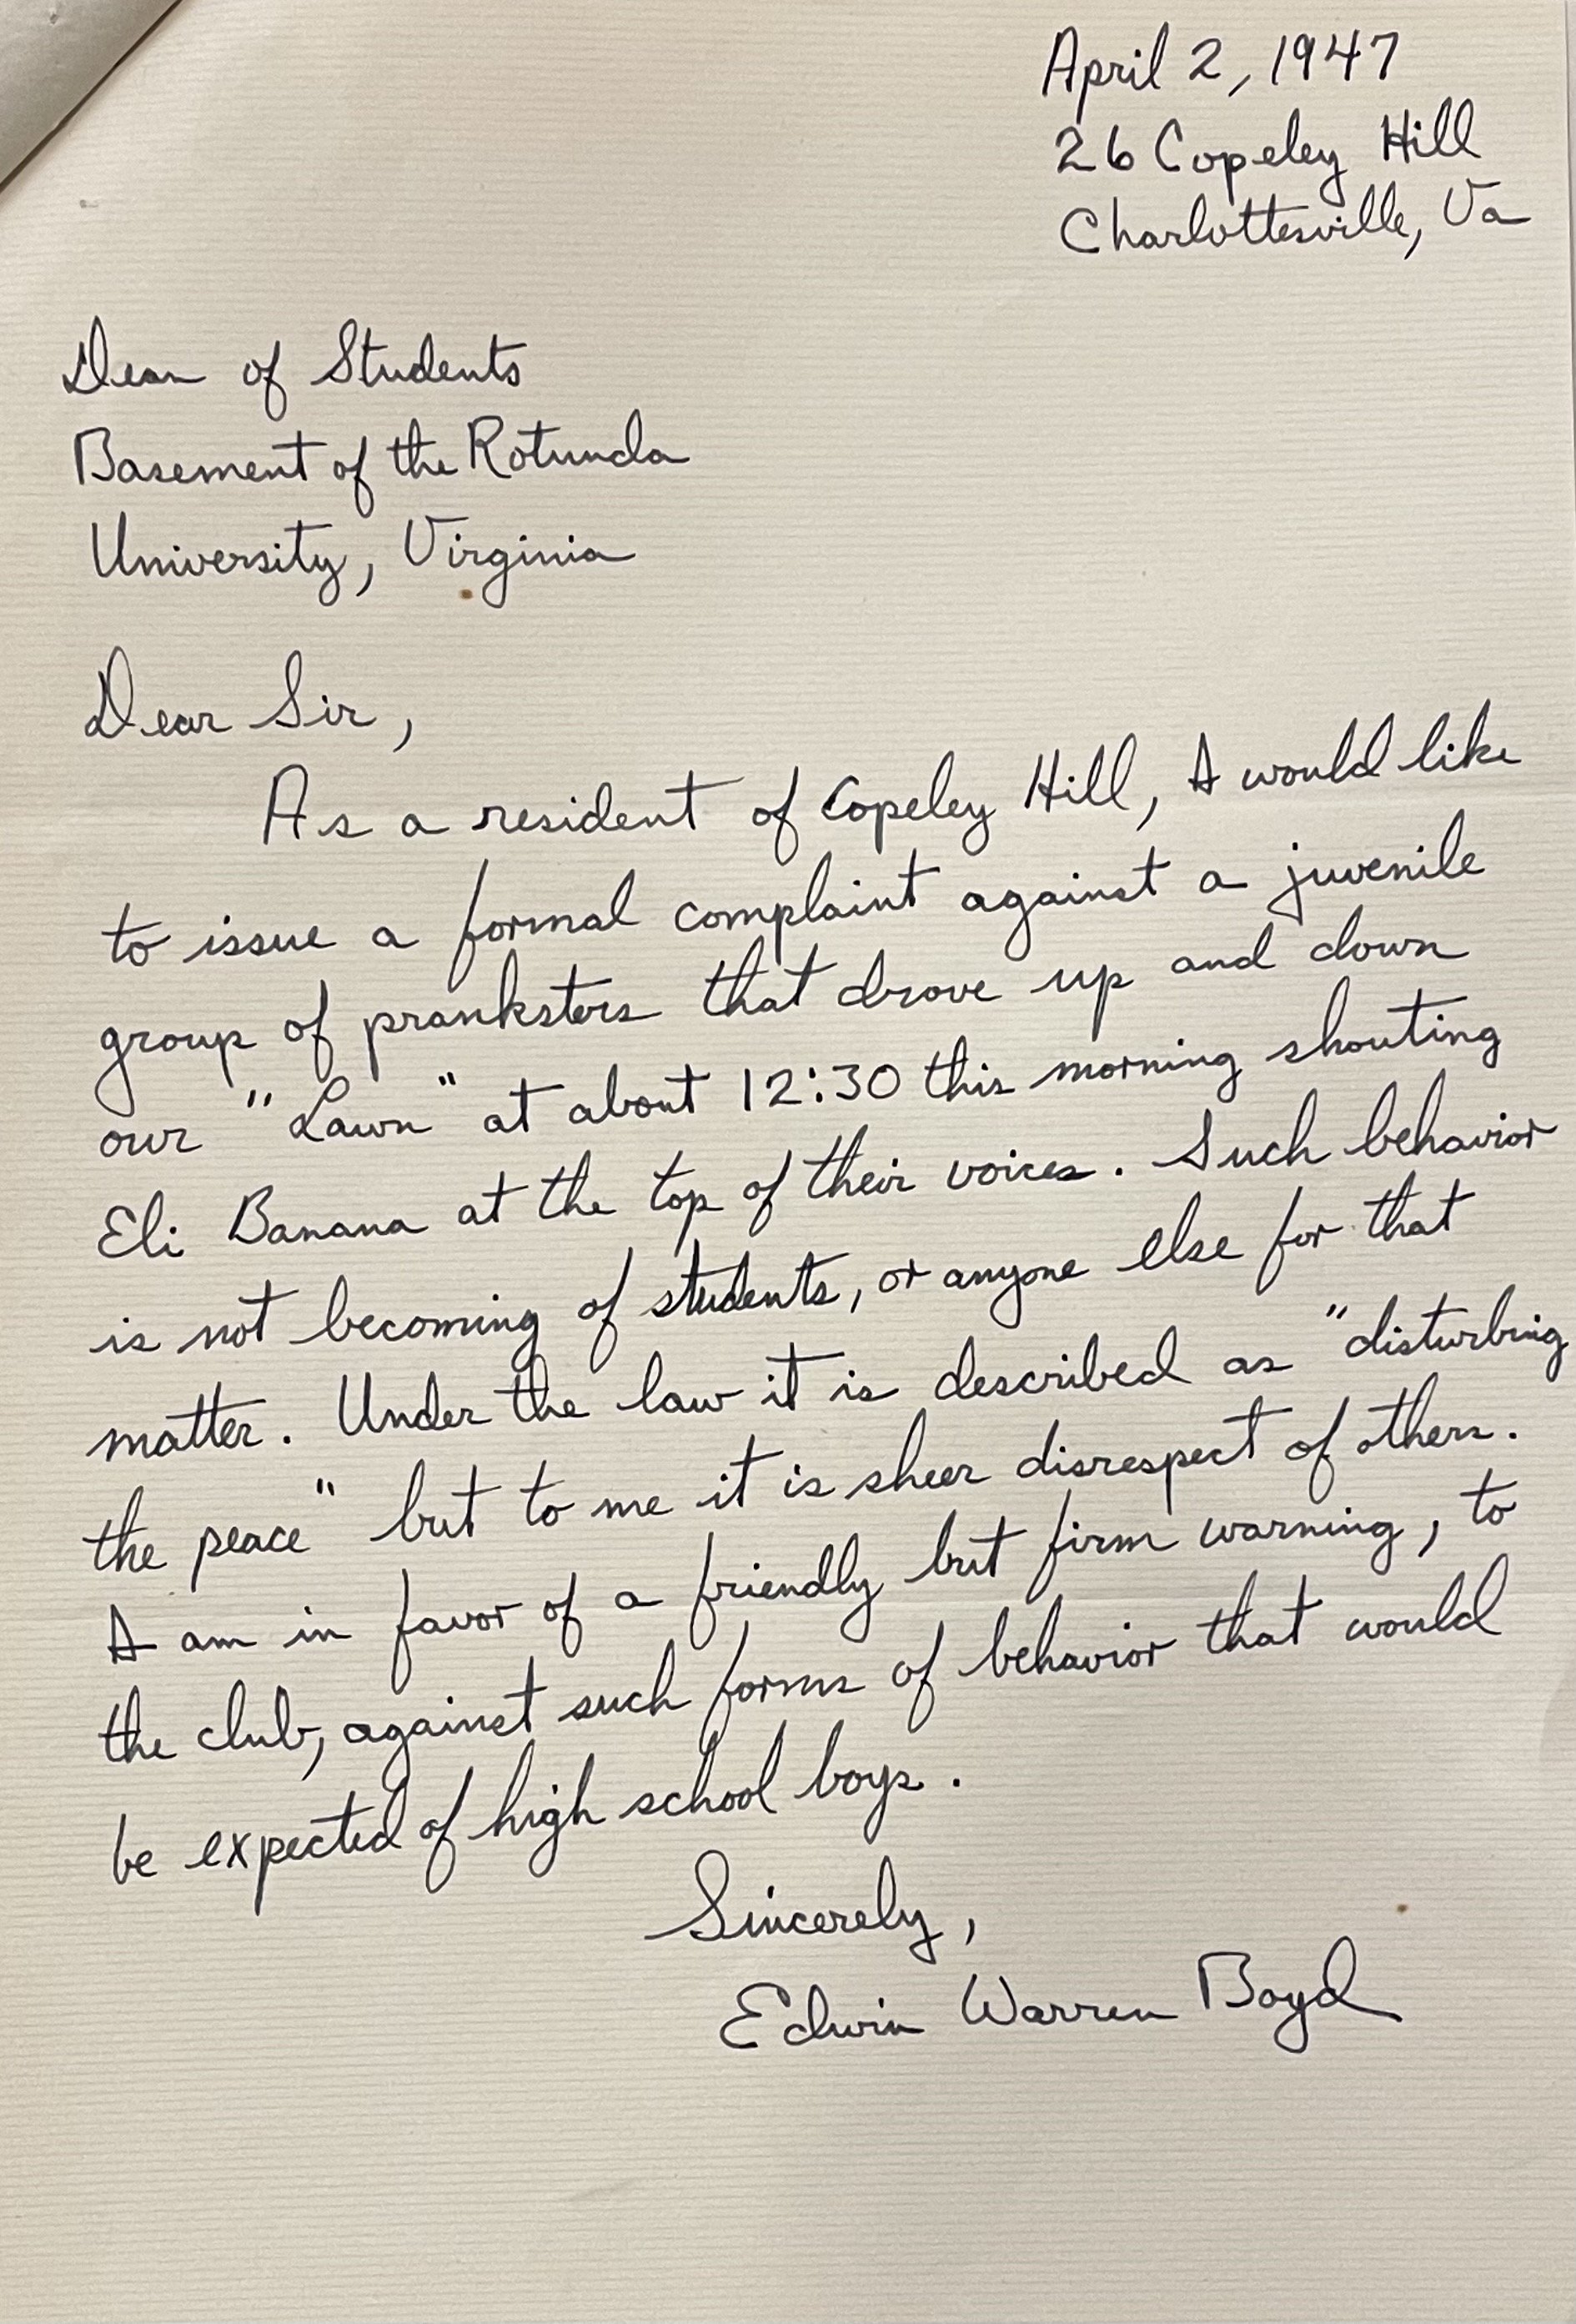 April 2, 1947
26 Copeley Hill
Charlottesville, Va
Dean of Students
Basement of the Rotunda
University, Virginia
Dear Sir,
As a resident of Copeley Hill, I would like
to issue a formal complaint against a juvenile
group of pranksters that drove up and down
our "Lawn" at about 12:30 this morning shouting
Eli Banana at the top of their voices. Such behavior
is not becoming of students, or anyone else for that
matter. Under the law it is described as "disturbing
the peace" but to me it is sheer disrespect of others.
I am in favor of a friendly but firm warning, to
the club, against such forms of behavior that would
be expected of high school boys.
Sincerely,
Edwin Warren Boyd